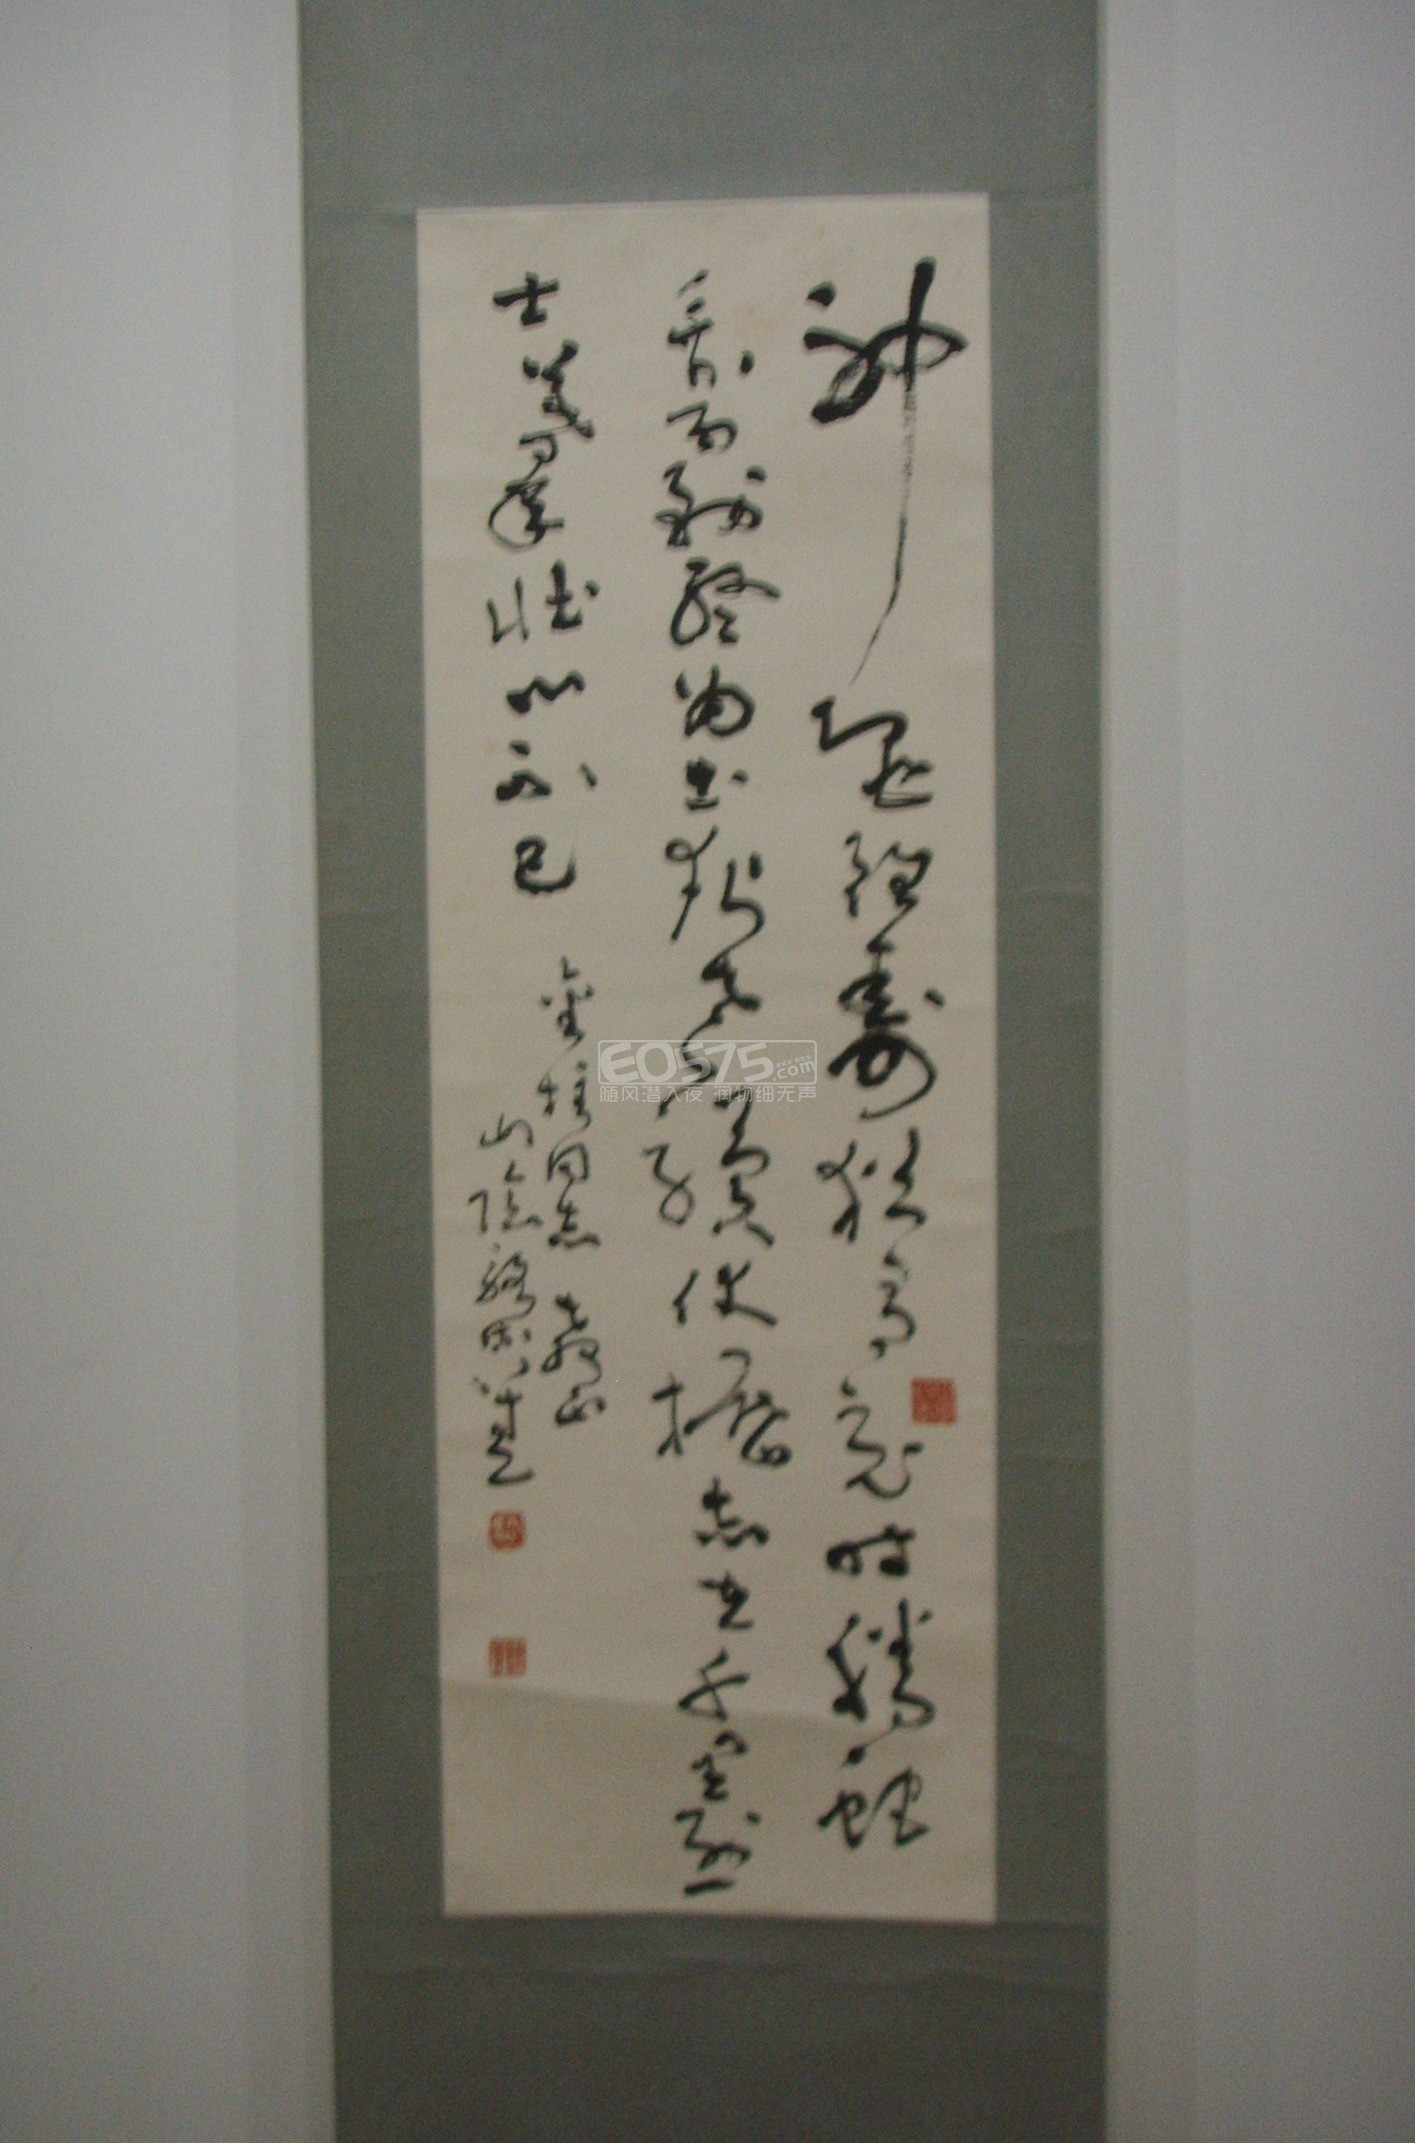 神龟虽寿犹有竟时腾蛇
乘雾终为土灰老骥伏枥志在千里烈
士暮年壮心不已
金柱同志教正
山阴
EOS75.com
随风潜入夜 润物细无声